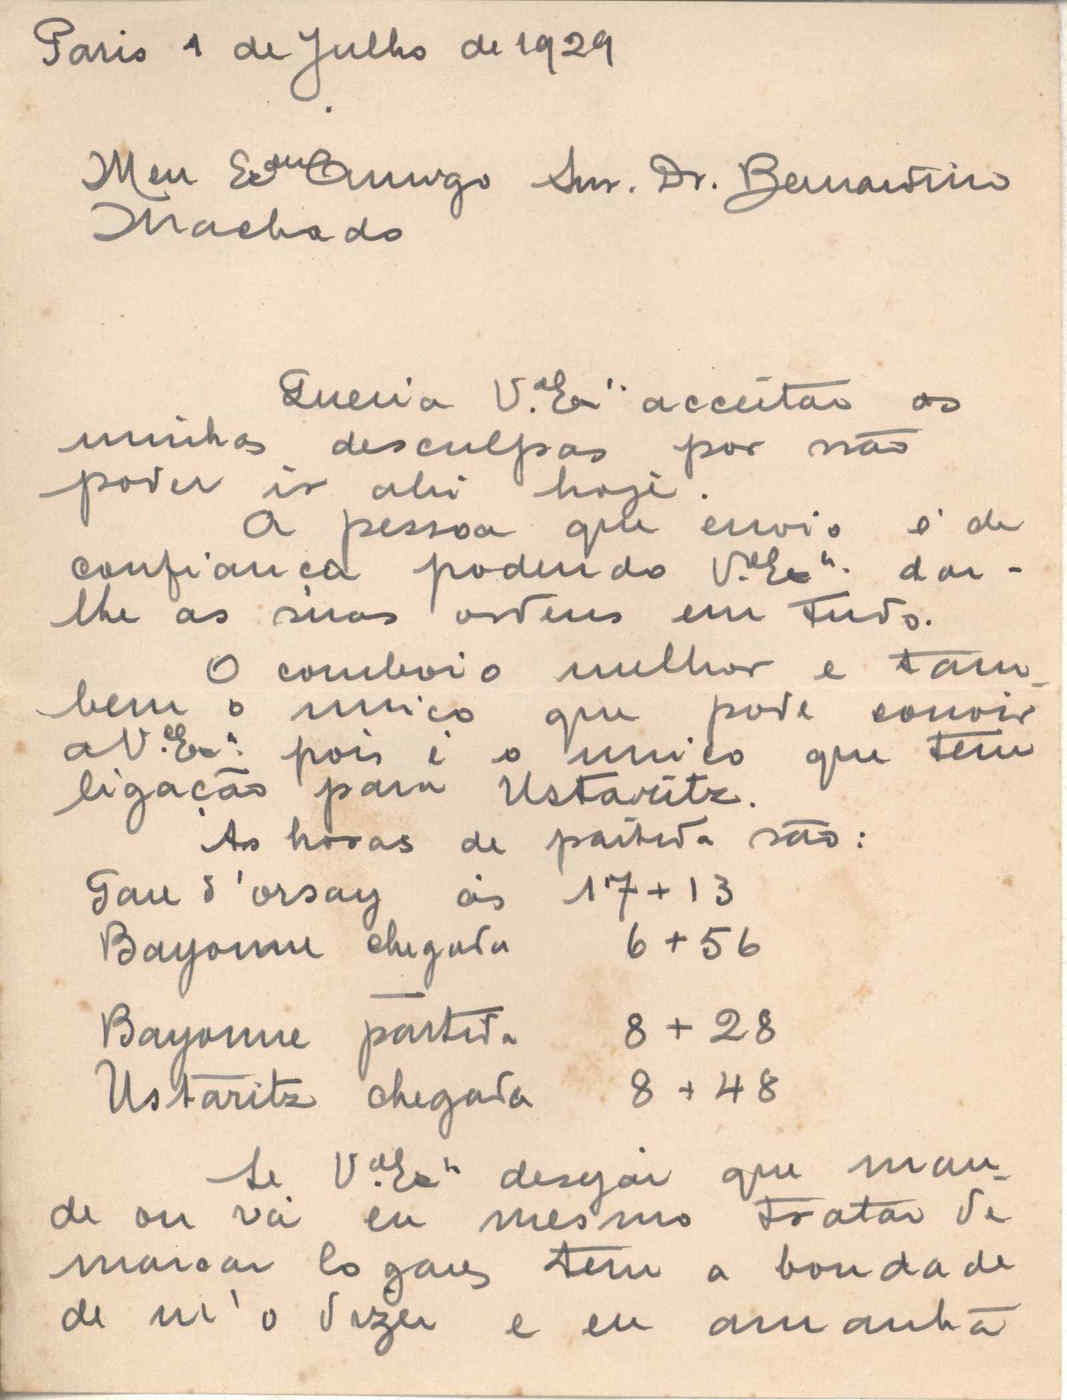 Paris 1 de Julho de 1929
Meu Exmo Amigo Snr. Dr. Bernardino
Machado
Queria V.ª Exª acceitar as
minhas desculpas por não
poder ir ahi hoje.
A pessoa que envio é de
confiança podendo V.ª Exª. dar-
lhe as suas ordens em tudo.
O comboio melhor e tam-
bem o unico que pode convir
a V.ª Exª. pois é o unico que tem
ligação para Ustaritz.
As horas de partida são:
Gare d'orsay ás 17+13
Bayonne chegada 6+56
Bayonne partida 8+28
Ustaritz chegada 8+48
Se V.ª Exª desejar que man-
de ou vá eu mesmo tratar de
marcar logares tem a bondade
de m'o dizer e eu amanhã